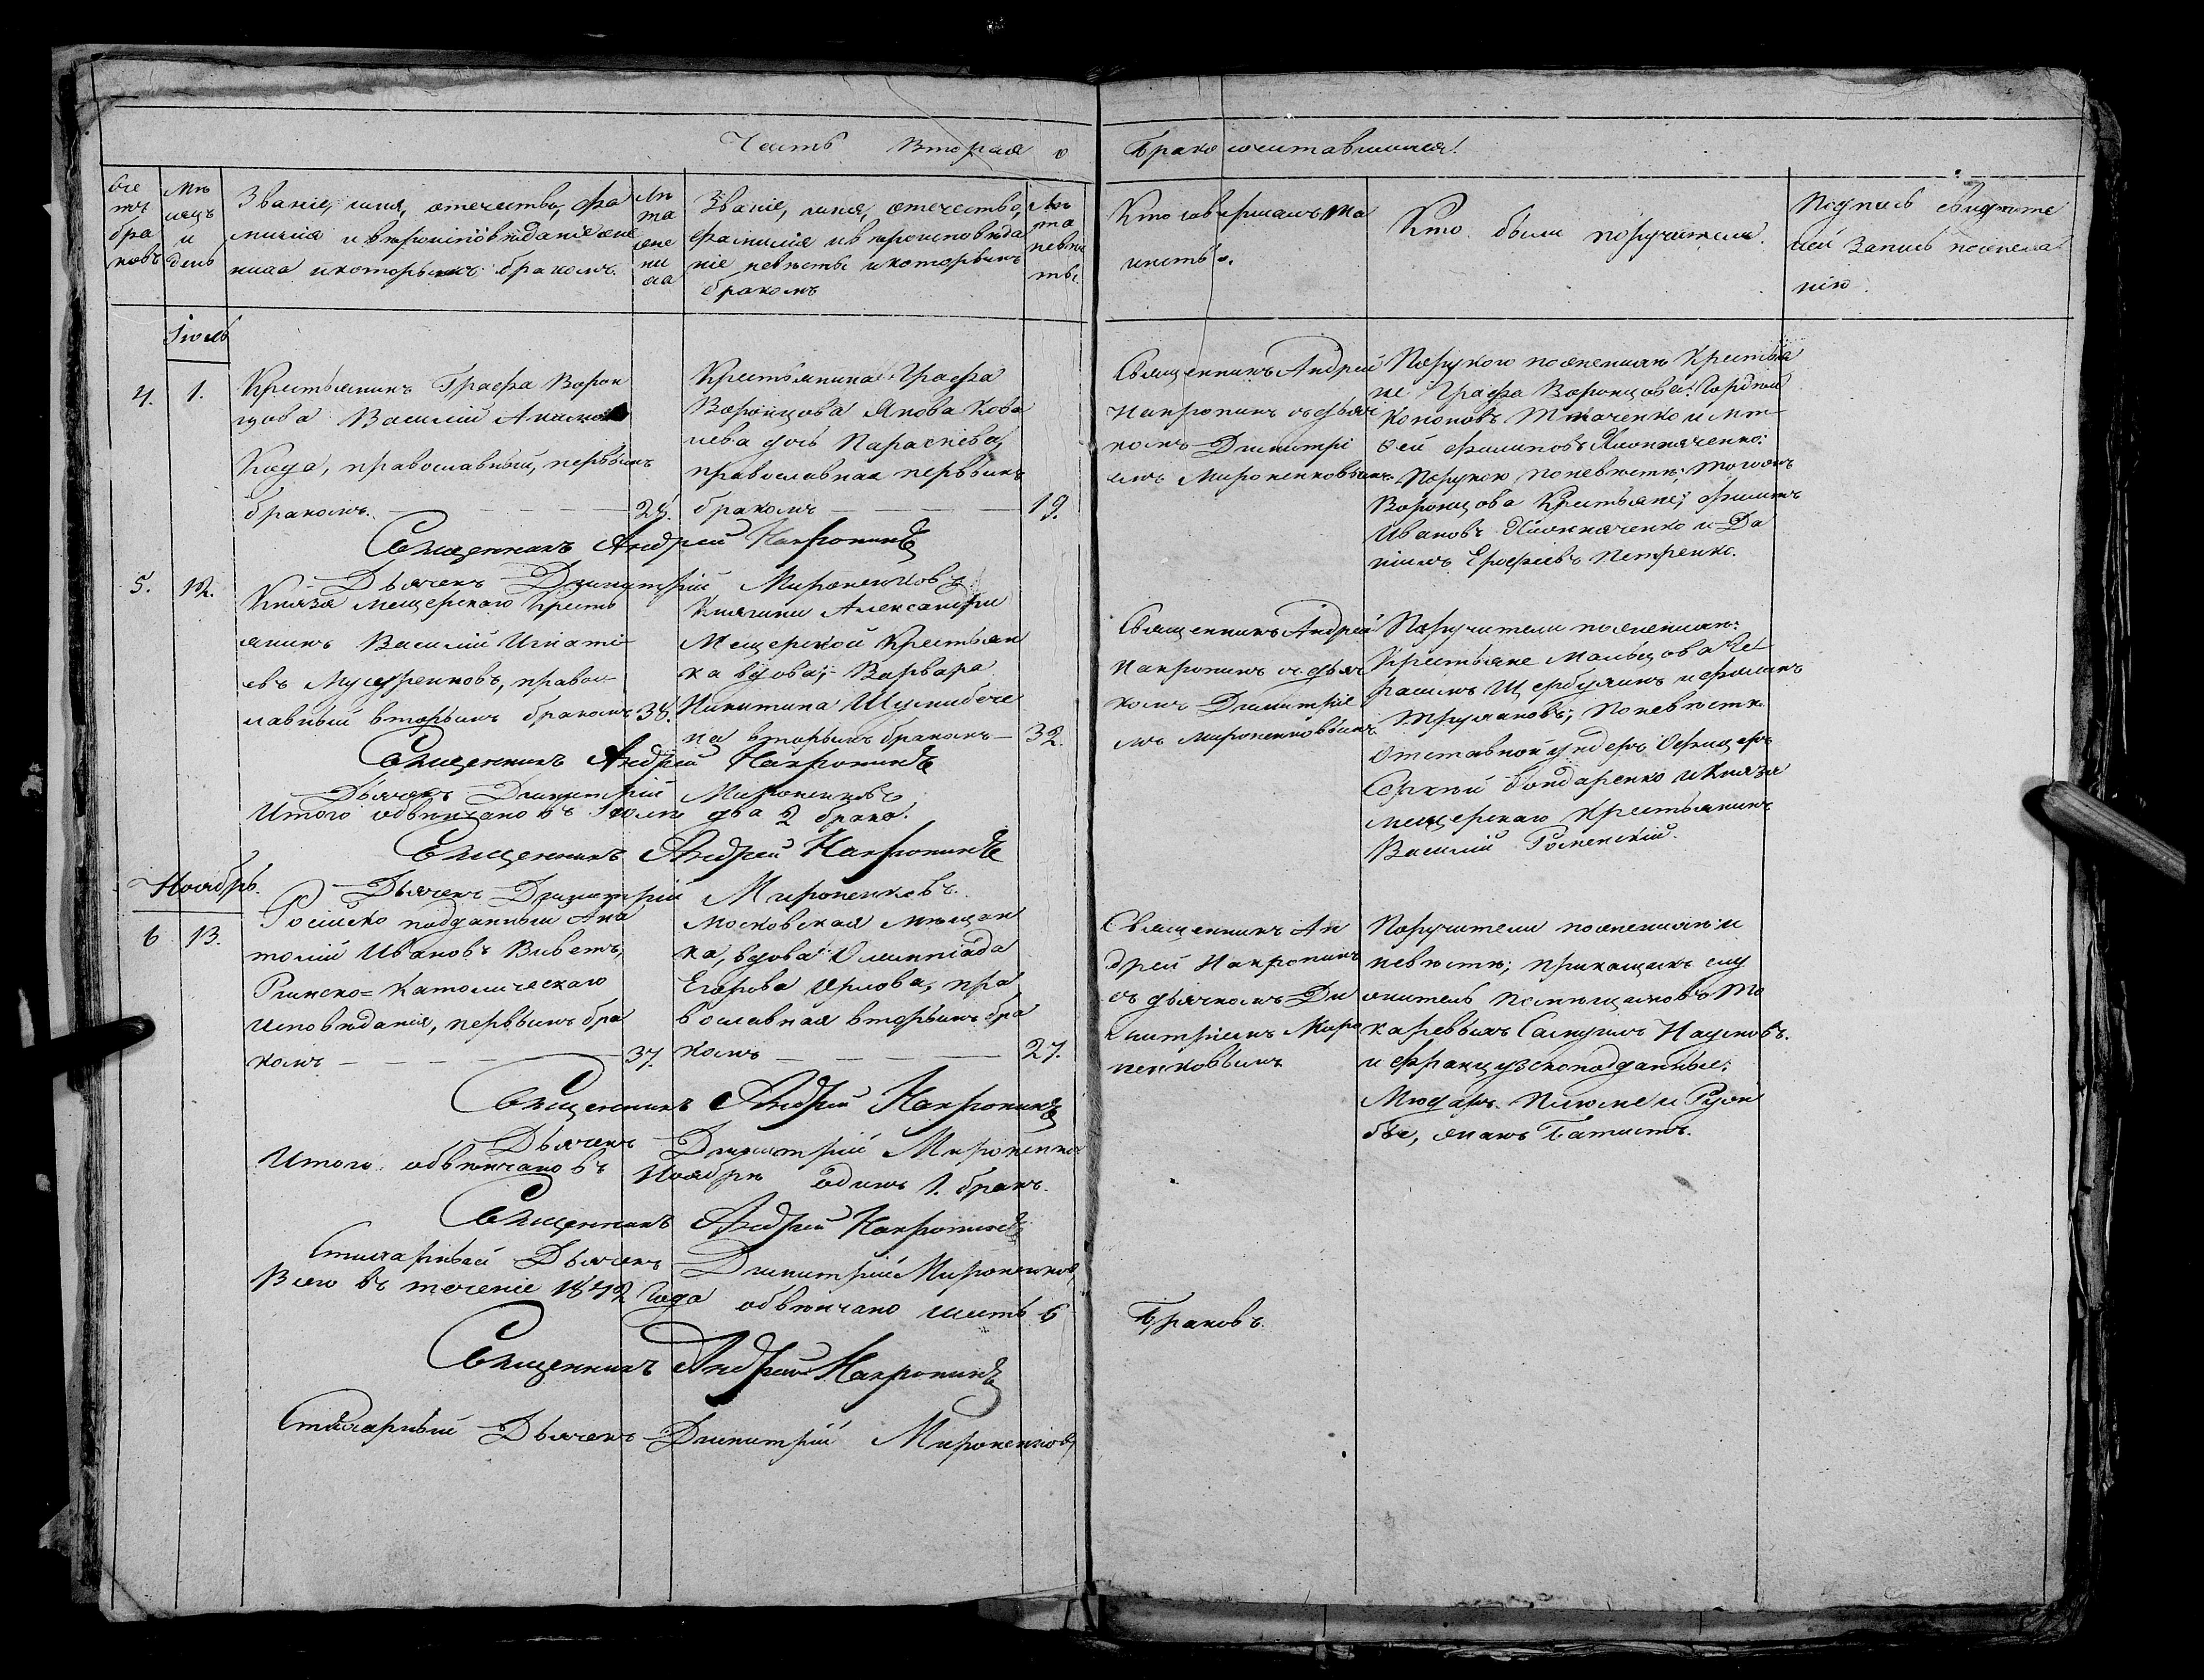 Часть Вторая о
Бракосочитавшихся!
Сче
тъ
бра
ковъ
Мѣ
сяцъ
и
день
Званіе, имя, отечество, фа
милія и вѣроисповѣданіе же
ниха и которымъ бракомъ.
Лѣ
та
же
ни
ха
Званіе, имя, отечество,
фамилія и вѣроисповѣда
ніе невѣсты и которымъ
бракомъ
Лѣ
та
невѣс
ты.
Кто совершалъ та
инство.
Кто были поручители.
Подпись свидѣте
лей запись по жела
нію.
Іюль
4.
1.
Крестьянинъ Графа Ворон
цова Василій
Кода, православный, первымъ
бракомъ. 28.
Крестьянина Графа
Воронцова Якова Кова
лева дочь Параскева,
православная первымъ
бракомъ 19.
Священникъ Андрей
Накропинъ съ дьяч
комъ Димитрі
емъ Мироненковымъ.
Порукою по женихѣ Крестья
не Графа Воронцова: Гордѣй
Кононовъ Ткаченко и Мат
ѳей Филиповъ
Порукою по невѣстѣ; тогожъ
Воронцова Крестьяне; Филипъ
Ивановъ и Да
ніилъ Ерофеевъ Петренко.
Священникъ Андрей Накропинъ
Дьячекъ Димитрій Мироненковъ
5.
12.
Князя Мещерскаго Кресть
янинъ Василій Игнаті
евъ правос
лавный вторымъ бракомъ 38.
Княгини Александры
Мещерской Крестьян
ка вдова; Варвара
Никитина
на вторымъ бракомъ 32.
Священникъ Андрей
Накропинъ съ дьяч
комъ Димитріе
мъ Мироненковымъ.
Поручители по женихѣ:
Крестьяне Мальцова Ге
расимъ и Филипъ
по невѣстѣ
Отставной ундеръ Офицеръ
Сергѣй Бондаренко и Князя
Мещерскаго Крестьянинъ
Василій Роменскій.
Священникъ Андрей Накропинъ
Дьячекъ Димитрій Мироненковъ
Итого обвѣнчано въ Іюлѣ два 2 брака.
Священникъ Андрей Накропинъ
Дьячекъ Димитрій Мироненковъ.
Ноябрь.
6
13.
Російско подданный Ана
толій Ивановъ Виветъ,
Римско=Католическаго
исповѣданія, первымъ бра
комъ 37.
Московская мѣщан
ка, вдова Олимпіада
Егорова Орлова, пра
вославная вторымъ бра
комъ 27.
Священникъ Ан
дрей Накропинъ
съ дьячкомъ Ди
митріемъ Миро
ненковымъ
Поручители по женихѣ и
невѣстѣ; прикащикъ слу
житель помѣщиковъ То
каревыхъ Самуилъ Наумовъ.
и Французскоподданные;
и
Жанъ Батистъ.
Священникъ Андрей Накропинъ
Дьячекъ Димитрій Мироненков
Итого обвѣнчано въ Ноябрѣ одинъ 1. бракъ.
Священникъ Андрей Накропинъ
Стихарный Дьячекъ Димитрій Мироненковъ
Всего въ теченіе 1842 Года обвѣнчано шесть 6
Браковъ.
Священникъ Андрей Накропинъ
Стихарный Дьячекъ Димитрій Мироненковъ